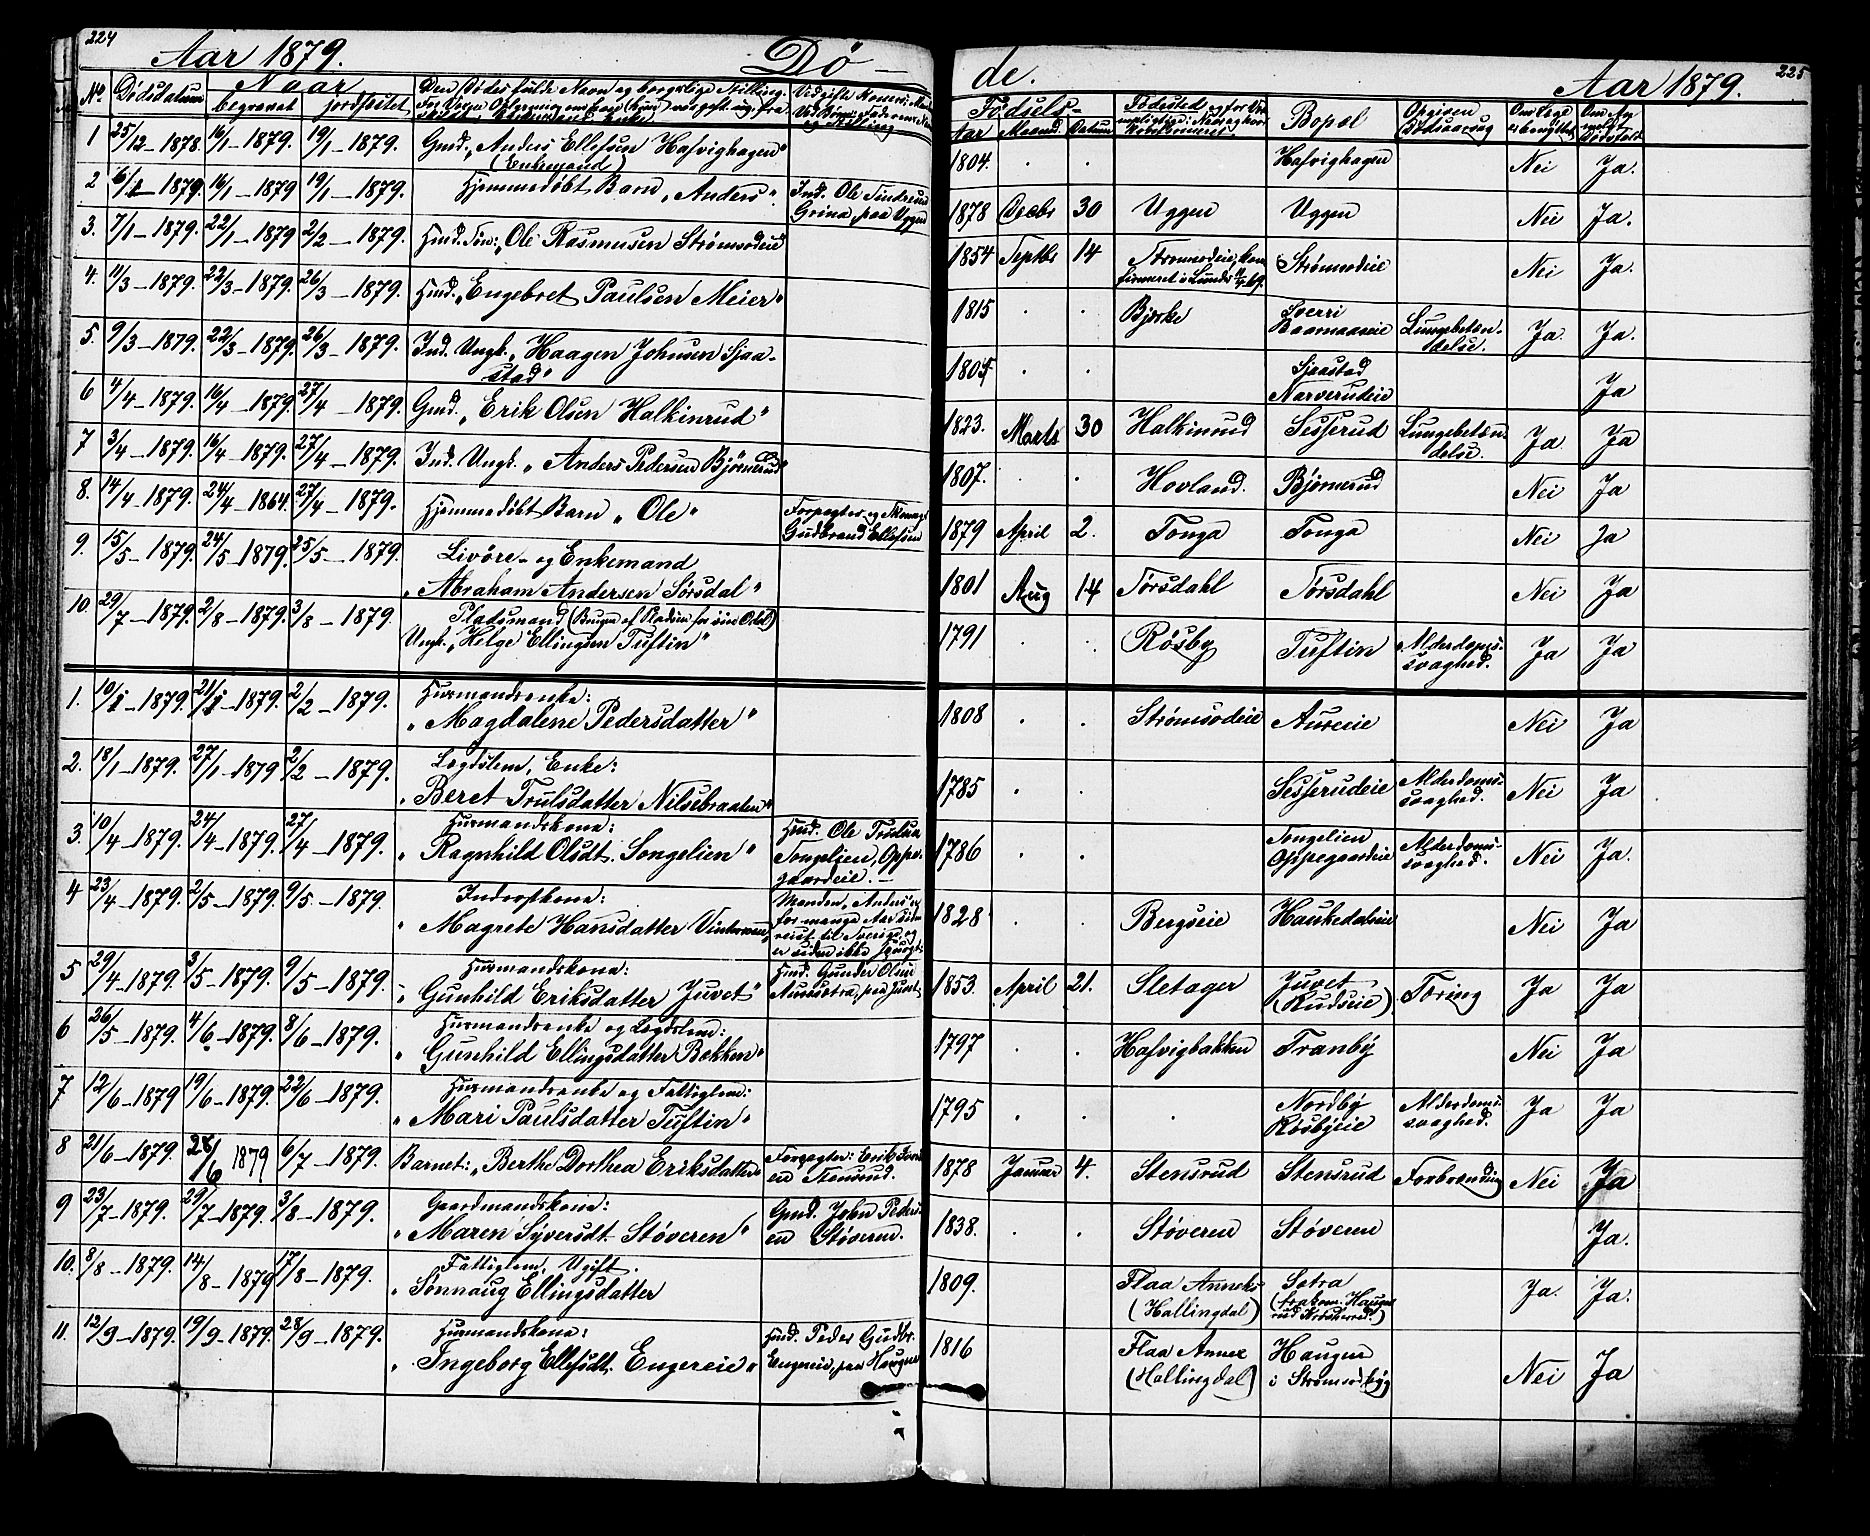 224
Aar 1879.
Dø-
No Dødsdatum Naar begravet jordfæstet Den Dødes fulde Navn og borgerlige Stilling.
1 25/12-1878. 16/1-1879. 19/1-1879. Gmd. „Anders Ellefsen Hafvighagen"
(Enkemand)
2 6/1-1879. 16/1-1879 19/1-1879. Hjemmedøbt Barn „Anders" Ind. Ole
Grina, paa Uggen
3. 7/1-1879. 22/1-1879 2/2-1879. Hmd. Søn: „Ole Rasmusen Strømsodeie
4. 11/3-1879. 22/3-1879. 26/3-1879. Hmd. „Engebret Paulsen Meier"
5. 9/3-1879. 22/3-1879. 26/3-1879. Ind. Ungk. „Haagen Johnsen Sjaa-
stad"
6 4/4-1879. 16/4-1879. 27/4-1879. Gmd. „Erik Olsen Halkinrud"
7 3/4-1879. 16/4-1879. 27/4-1879. Ind. Ungk. „Anders Pedersen Bjørnerud"
8. 14/4-1879. 24/4-1864. 27/4-1879. Hjemmedøbt Barn „Ole" Forpagter og
Gudbrand Ellefsen
9. 15/5-1879. 24/5-1879. 25/5-1879. Livøre- og Enkemand
„Abraham Andersen Sørsdal"
10. 29/7-1879. 2/8-1879. 3/8-1879. Pladsmand (Bruger af Pladsen for sin Odel)
Ungk. „Helge Ellingsen Tuftin"
1. 10/1-1879. 21/1-1879. 2/2-1879. Husmandsenke:
„Magdalene Pedersdatter"
2. 18/1-1879. 27/1-1879 2/2-1879. Legdslem, Enke:
„Beret Trulsdatter Nilsebraaten"
3. 10/4-1879. 24/4-1879. 27/4-1879. Husmandskone: Hmd. Ole Trulsen
„Ragnhild Olsdt. Songelien" Songelien, Oppe-
gaardeie.
4 23/4-1879. 2/5-1879. 9/5-1879. Inderstkone: Manden, Anders
„Magrete Hansdatter for mange Aar siden
reist til Sverige, og
er siden ikke spurgt.
5 29/4-1879. 3/5-1879. 9/5-1879. Husmandskone: Hmd. Gunder Olsen
„Gunhild Eriksdatter Juvet" paa Juvet
6 26/5-1879. 4/6-1879. 8/6-1879. Husmandsenke og Legdslem:
„Gunhild Ellingsdatter Bækken"
7 12/6-1879 19/6-1879. 22/6-1879. Husmandsenke og Fattiglem:
„Mari Paulsdatter Tuftin"
8 21/6-1879. 28/6 1879 6/7-1879. Barnet: „Berthe Dorthea Eriksdatter" Forpagter: Erik
Stensrud.
9 23/7-1879. 29/7-1879. 3/8-1879. Gaardmandskone: Gmd. John Peders-
„Maren Syversdt. Støveren" en Støveren.
10. 8/8-1879. 14/8-1879 17/8-1879. Fattiglem, Ugift.
„Sønnaug Ellingsdatter
11. 12/9-1879. 19/9-1879. 28/9-1879. Husmandskone: Hmd. Peder Gudbr.
„Ingeborg Ellefsdt. Engereie" Engereie, paa Haugen
de.
Aar 1879.
225
Fødsels- Aar Maaned Datum Fødested Bopæl Opgiven Dødsaarsag Om Læge er benyttet
1804. . . Hafvighagen Nei Ja.
1878 Decbr 30 Uggen Uggen Nei Ja.
1854 Septbr 14 Strømsodeie, kon-
firmeret i Lunder Strømsodeie Nei Ja.
1815 . . Bjerke Sverri
Baamaaseie Lungebetæn-
delse. Ja. Ja.
1805 . . Sjaastad
Narverudeie Ja
1823. Marts 30 Halkinrud Sesserud Lungebetæn-
delse. Ja. Ja
1807. . . Hovland. Bjørnerud Nei Ja
1879 April 2. Tonga Tonga Nei Ja
1801 Aug 14 Sørsdahl Sørsdahl Nei Ja
1791 . . Røsby Tuftin Alderdoms-
svaghed. Ja Ja
1808 . . Strømsodeie Aureeie Nei Ja
1785 . . Sesserudeie Alderdoms-
svaghed. Nei Ja
1786 . . Songelien
Oppegaardeie Alderdoms-
svaghed. Nei Ja.
1828 . . Bergseie Haukedaleie Nei Ja
1853. April 21. Sletager Juvet
(Rudseie) Tæring Ja Ja
1797 . . Hafvigbakken Tranby Nei Ja
1795 . . . Nordby
Røsbyeie Alderdoms-
svaghed. Ja Ja
1878 Januar 4. Stensrud Stensrud Forbrænding Nei Ja
1838. . . Støveren Støveren Ja.
1809. Flaa Anneks
(Hallingdal) Sætra
(frakom. Hauge-
rud Krødsherred.) Ja. Ja.
1816 Flaa Annex
(Hallingdal) Haugen
i Strømsodbyg Nei Ja